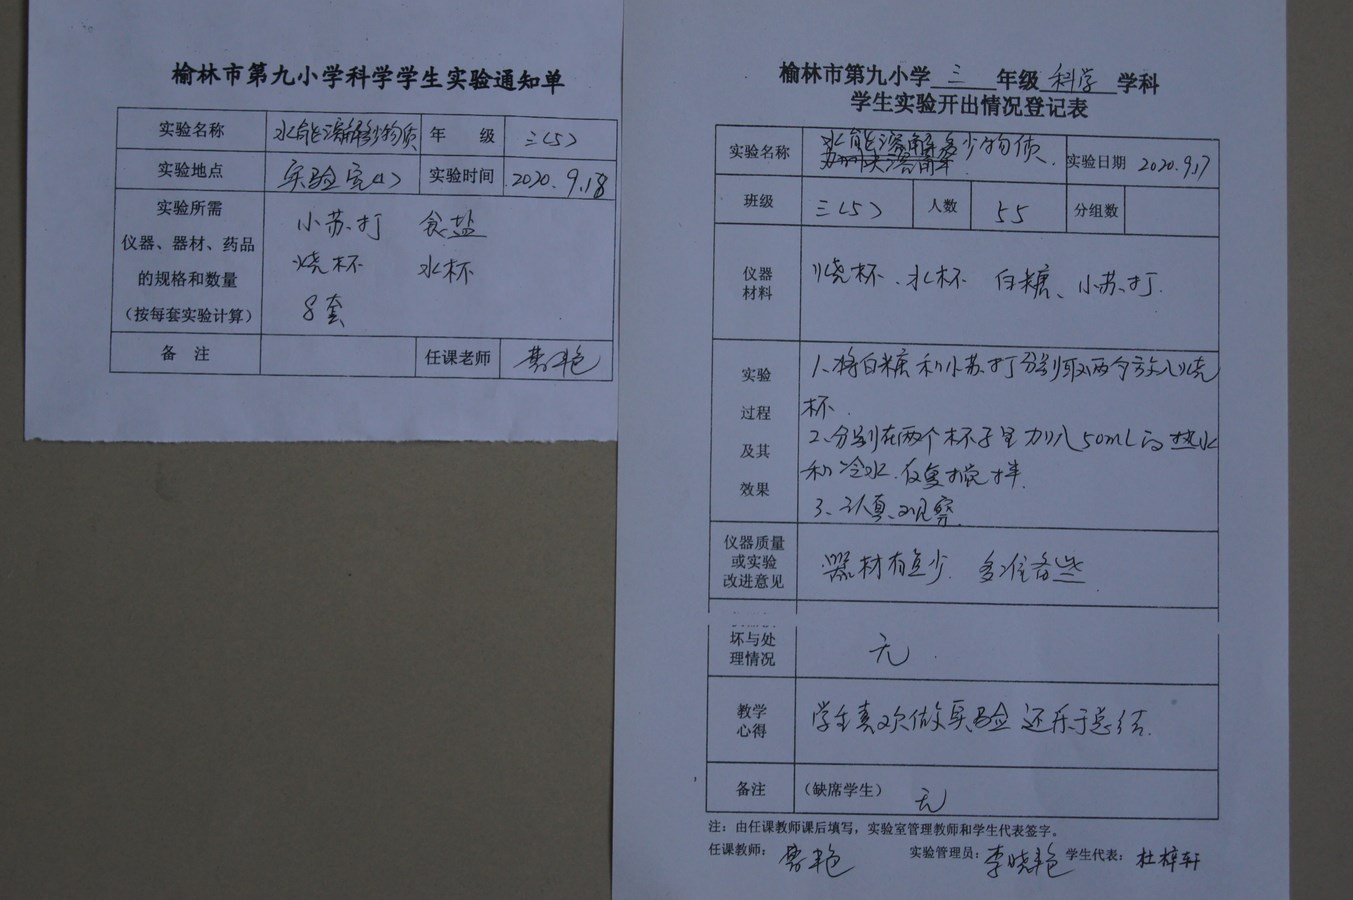 榆林市第九小学科学学生实验通知单
实验名称 水能溶解多少物质 年 级 三(5)
实验地点 实验室(1) 实验时间 2020.9.18
实验所需
仪器、器材、药品
的规格和数量
(按每套实验计算)
小苏打 食盐
烧杯 水杯
8套
备 注 任课老师
榆林市第九小学 三 年级 科学 学科
学生实验开出情况登记表
实验名称 水能溶解多少物质. 实验日期 2020.9.17
班级 三(5) 人数 55 分组数
仪器
材料
烧杯、水杯 白糖、小苏打.
实验
过程
及其
效果
1、将白糖和小苏打分别取两个放入烧
杯.
2、分别在两个杯子里加入50mL的热水
和冷水.反复搅拌.
3、认真观察.
仪器质量
或实验
改进意见
器材有点少. 多准备些
坏与处
理情况
无.
教学
心得
学生喜欢做实验还乐于总结.
备注 (缺席学生) 无
注:由任课教师课后填写,实验室管理教师和学生代表签字。
任课教师: 实验管理员:李晓艳 学生代表:杜梓轩